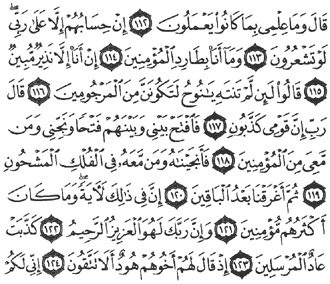 قَالَ وَمَا عِلْمِى بِمَا كَانُوا۟ يَعْمَلُونَ ﴿١١٢﴾ إِنْ حِسَابُهُمْ إِلَّا عَلَىٰ رَبِّى ۖ
لَوْ تَشْعُرُونَ ﴿١١٣﴾ وَمَآ أَنَا۠ بِطَارِدِ ٱلْمُؤْمِنِينَ ﴿١١٤﴾ إِنْ أَنَا۠ إِلَّا نَذِيرٌ مُّبِينٌ
﴿١١٥﴾ قَالُوا۟ لَئِن لَّمْ تَنتَهِ يَٰنُوحُ لَتَكُونَنَّ مِنَ ٱلْمَرْجُومِينَ ﴿١١٦﴾ قَالَ
رَبِّ إِنَّ قَوْمِى كَذَّبُونِ ﴿١١٧﴾ فَٱفْتَحْ بَيْنِى وَبَيْنَهُمْ فَتْحًا وَنَجِّنِى وَمَن
مَّعِىَ مِنَ ٱلْمُؤْمِنِينَ ﴿١١٨﴾ فَأَنجَيْنَٰهُ وَمَن مَّعَهُۥ فِى ٱلْفُلْكِ ٱلْمَشْحُونِ
﴿١١٩﴾ ثُمَّ أَغْرَقْنَا بَعْدُ ٱلْبَاقِينَ ﴿١٢٠﴾ إِنَّ فِى ذَٰلِكَ لَءَايَةً ۖ وَمَا كَانَ
أَكْثَرُهُم مُّؤْمِنِينَ ﴿١٢١﴾ وَإِنَّ رَبَّكَ لَهُوَ ٱلْعَزِيزُ ٱلرَّحِيمُ ﴿١٢٢﴾ كَذَّبَتْ
عَادٌ ٱلْمُرْسَلِينَ ﴿١٢٣﴾ إِذْ قَالَ لَهُمْ أَخُوهُمْ هُودٌ أَلَا تَتَّقُونَ ﴿١٢٤﴾ إِنِّى لَكُمْ